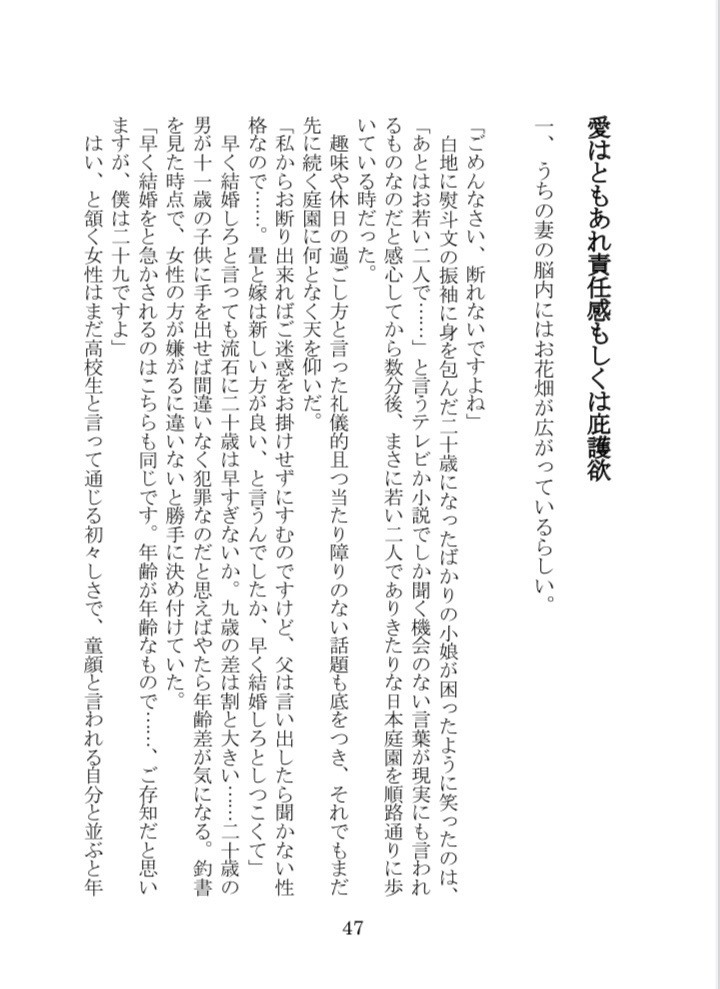 愛はともあれ責任感もしくは庇護欲
一、うちの妻の脳内にはお花畑が広がっているらしい。
「ごめんなさい、断れないですよね」
白地に熨斗文の振袖に身を包んだ二十歳になったばかりの小娘が困ったように笑ったのは、
「あとはお若い二人で……」と言うテレビか小説でしか聞く機会のない言葉が現実にも言われ
るものなのだと感心してから数分後、まさに若い二人でありきたりな日本庭園を順路通りに歩
いている時だった。
趣味や休日の過ごし方と言った礼儀的且つ当たり障りのない話題も底をつき、それでもまだ
先に続く庭園に何となく天を仰いだ。
「私からお断り出来ればご迷惑をお掛けせずにすむのですけど、父は言い出したら聞かない性
格なので……。畳と嫁は新しい方が良い、と言うんでしたか、早く結婚しろとしつこくて」
早く結婚しろと言っても流石に二十歳は早すぎないか。九歳の差は割と大きい……二十歳の
男が十一歳の子供に手を出せば間違いなく犯罪なのだと思えばやたら年齢差が気になる。釣書
を見た時点で、女性の方が嫌がるに違いないと勝手に決め付けていた。
「早く結婚をと急かされるのはこちらも同じです。年齢が年齢なもので……、ご存知だと思い
ますが、僕は二十九ですよ」
はい、と頷く女性はまだ高校生と言って通じる初々しさで、童顔と言われる自分と並ぶと年
47